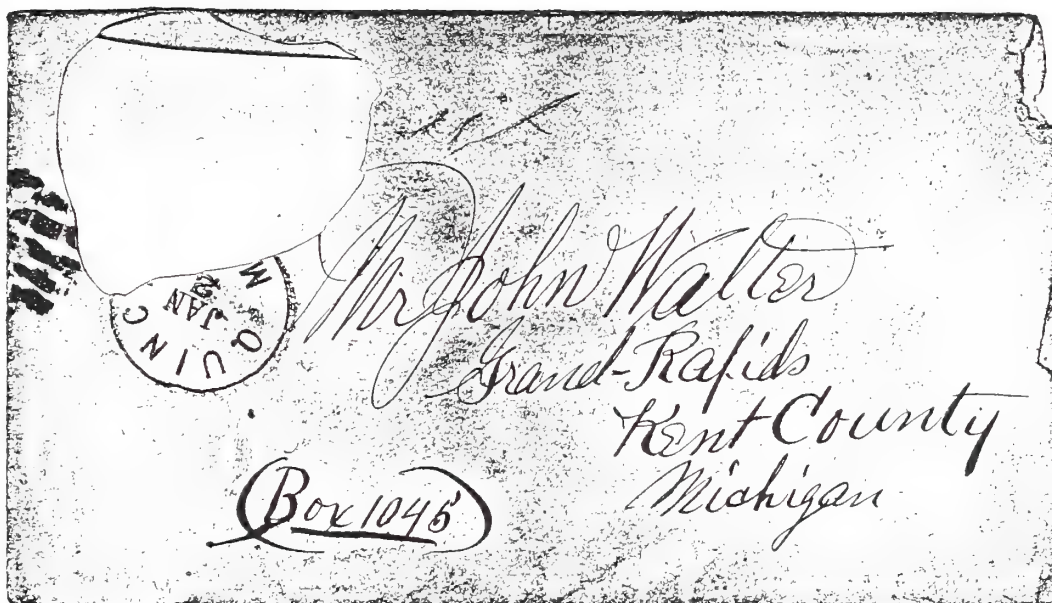 QUINC
M
JAN
Mr John Walter
Grand-Rapids
Kent County
Michigan
Box 1045